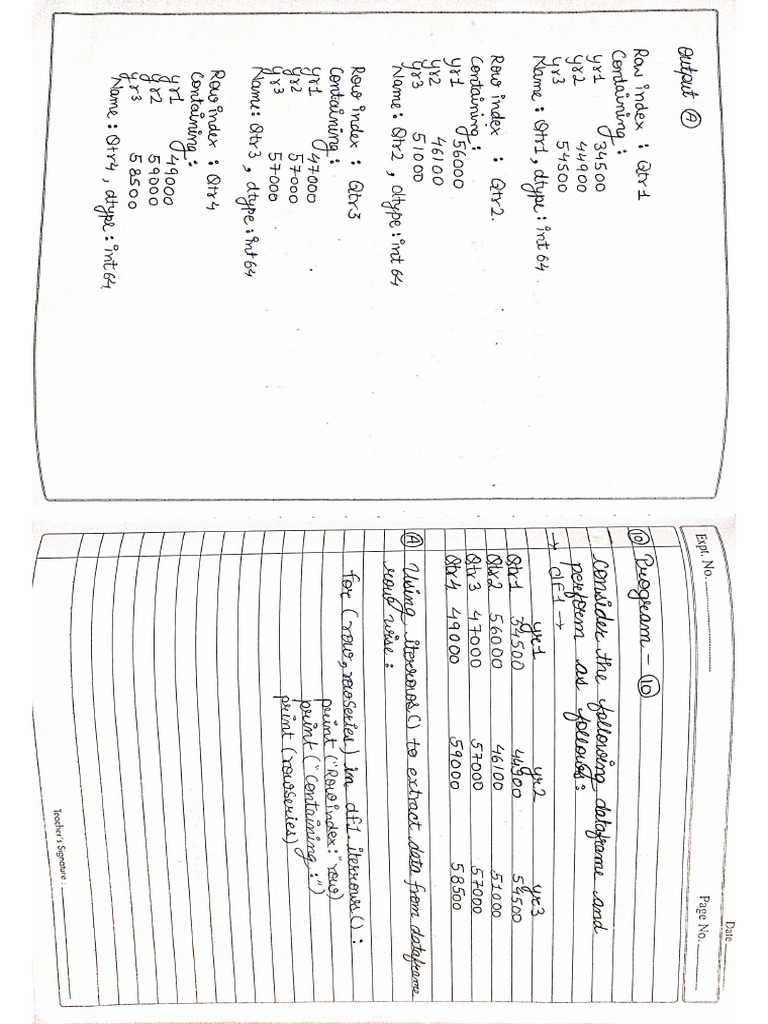 Output Ⓐ
Row index : Qtr1
Containing :
yr1 34500
yr2 44900
yr3 54500
Name : Qtr1, dtype : int 64
Row index : Qtr2.
Containing :
yr1 56000
yr2 46100
yr3 51000
Name : Qtr2 , dtype : int 64
Row index : Qtr3
Containing :
yr1 47000
yr2 57000
yr3 57000
Name : Qtr3 , dtype : int 64
Row index : Qtr4
Containing :
yr1 49000
yr2 59000
yr3 58500
Name : Qtr4 , dtype : int 64
Date
Expt. No. Page No.
⑩ Program - ⑩
Consider the following dataframe and
perform as follows:
→ df1 →
yr1 yr2 yr3
Qtr1 34500 44900 54500
Qtr2 56000 46100 51000
Qtr3 47000 57000 57000
Qtr4 49000 59000 58500
Ⓐ Using iterrows() to extract data from dataframe
row wise :
for (row, rowSeries) in df1.iterrows() :
print ("Row index:" row)
print ("Containing :")
print (rowseries)
Teacher's Signature :